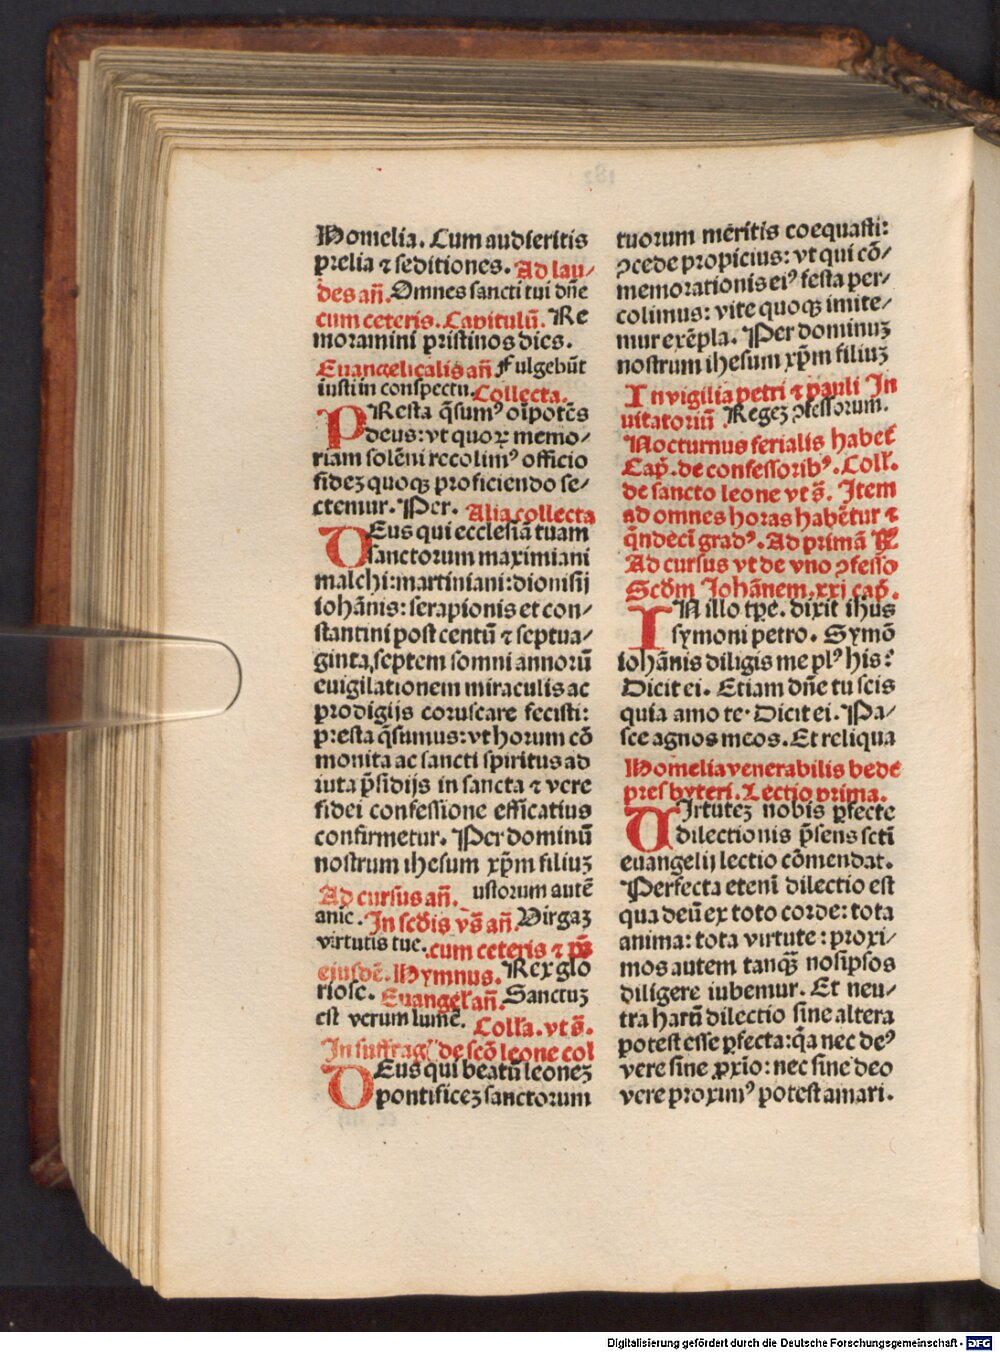 Homelia. Cum audieritis
prelia ⁊ seditiones. Ad lau/
des añ. Omnes sancti tui dñe
cum ceteris. Capitulũ. Re
moramini pristinos dies.
Euangelicalis añ Fulgebũt
iusti in conspectu. Collecta.
PResta q̃sumꝰ oĩpotẽs
deus: vt quoꝝ memo/
riam solẽni recolimꝰ officio
fidez quoqꝫ proficiendo se/
ctemur. Per. Alia collecta
DEus qui ecclesiã tuam
sanctorum maximiani
malchi: martiniani: dionisij
iohãnis: serapionis et con/
stantini post centũ ⁊ septua/
ginta septem somni annorũ
euigilationem miraculis ac
prodigijs coruscare fecisti:
presta q̃sumus: vt horum cõ
monita ac sancti spiritus ad
iuta p̃sidijs in sancta ⁊ vere
fidei confessione efficatius
confirmetur. Per dominũ
nostrum ihesum xp̃m filiuꝫ
Ad cursus añ. ustorum autẽ
anie. In scd̃is vs̃ añ. Virgaꝫ
virtutis tue. cum ceteris ⁊ ps̃
eiusdẽ. Hymnus. Rex glo
riose. Euangeł añ. Sanctuꝫ
est verum lumẽ. Coll'a. vt s̃.
In suffrag' de scõ leone col
DEus qui beatũ leoneꝫ
pontificeꝫ sanctorum
tuorum meritis coequasti:
ꝯcede propicius: vt qui cõ/
memorationis eiꝰ festa per/
colimus: vite quoqꝫ imite/
mur exẽpla. Per dominuꝫ
nostrum ihesum xp̃m filiuꝫ
In vigilia petri ⁊ pauli In
uitatoriũ. Regeꝫ ꝯfessorum.
Nocturnus ferialis habet̃
Cap̃. de confessoribꝰ. Coll'.
de sancto leone vt s̃. Item
ad omnes horas habẽtur ⁊
q̃ndeci gradꝰ. Ad primã ℟
Ad cursus vt de vno ꝯfesso
Scd̃m Iohãnem. xxi cap̃.
IN illo tp̃e. dixit ihus
symoni petro. Symõ
iohãnis diligis me plꝰ his?
Dicit ei. Etiam dñe tu scis
quia amo te. Dicit ei. Pa/
sce agnos meos. Et reliqua
Homelia venerabilis bede
presbyteri. Lectio prima.
VIrtuteꝫ nobis ꝑfecte
dilectionis p̃sens scti
euangelij lectio cõmendat.
Perfecta eteni dilectio est
qua deũ ex toto corde: tota
anima: tota virtute: proxi/
mos autem tanqꝫ̃ nosipsos
diligere iubemur. Et neu/
tra harũ dilectio sine altera
potest esse ꝑfecta: q̃a nec deꝰ
vere sine ꝓxio: nec sine deo
vere proximꝰ potest amari.
Digitalisierung gefördert durch die Deutsche Forschungsgemeinschaft - DFG